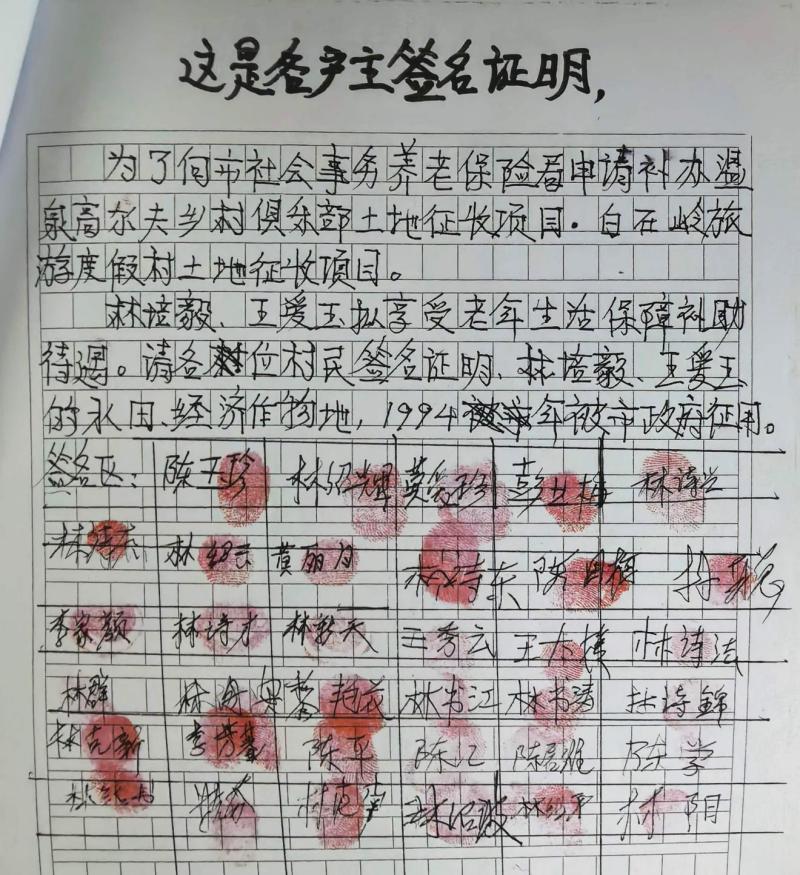 这是各户主签名证明,
为了向市社会事务养老保险局申请补办温
泉高尔夫乡村俱乐部土地征收项目.白石岭旅
游度假村土地征收项目。
林培毅、王爱玉拟享受老年生活保障补助
待遇。请各位村民签名证明、林培毅、王爱玉
的水田、经济作物地,1994年被市政府征用。
签名区: 陈玉珍 林绍辉 黄爱珍 林诗兰
林绍云 黄丽月 林诗东
李家颜 林诗才 王秀云 林诗法
林群 林书江 林书涛 林诗锦
林克新 陈平 陈汇 陈学
林阳